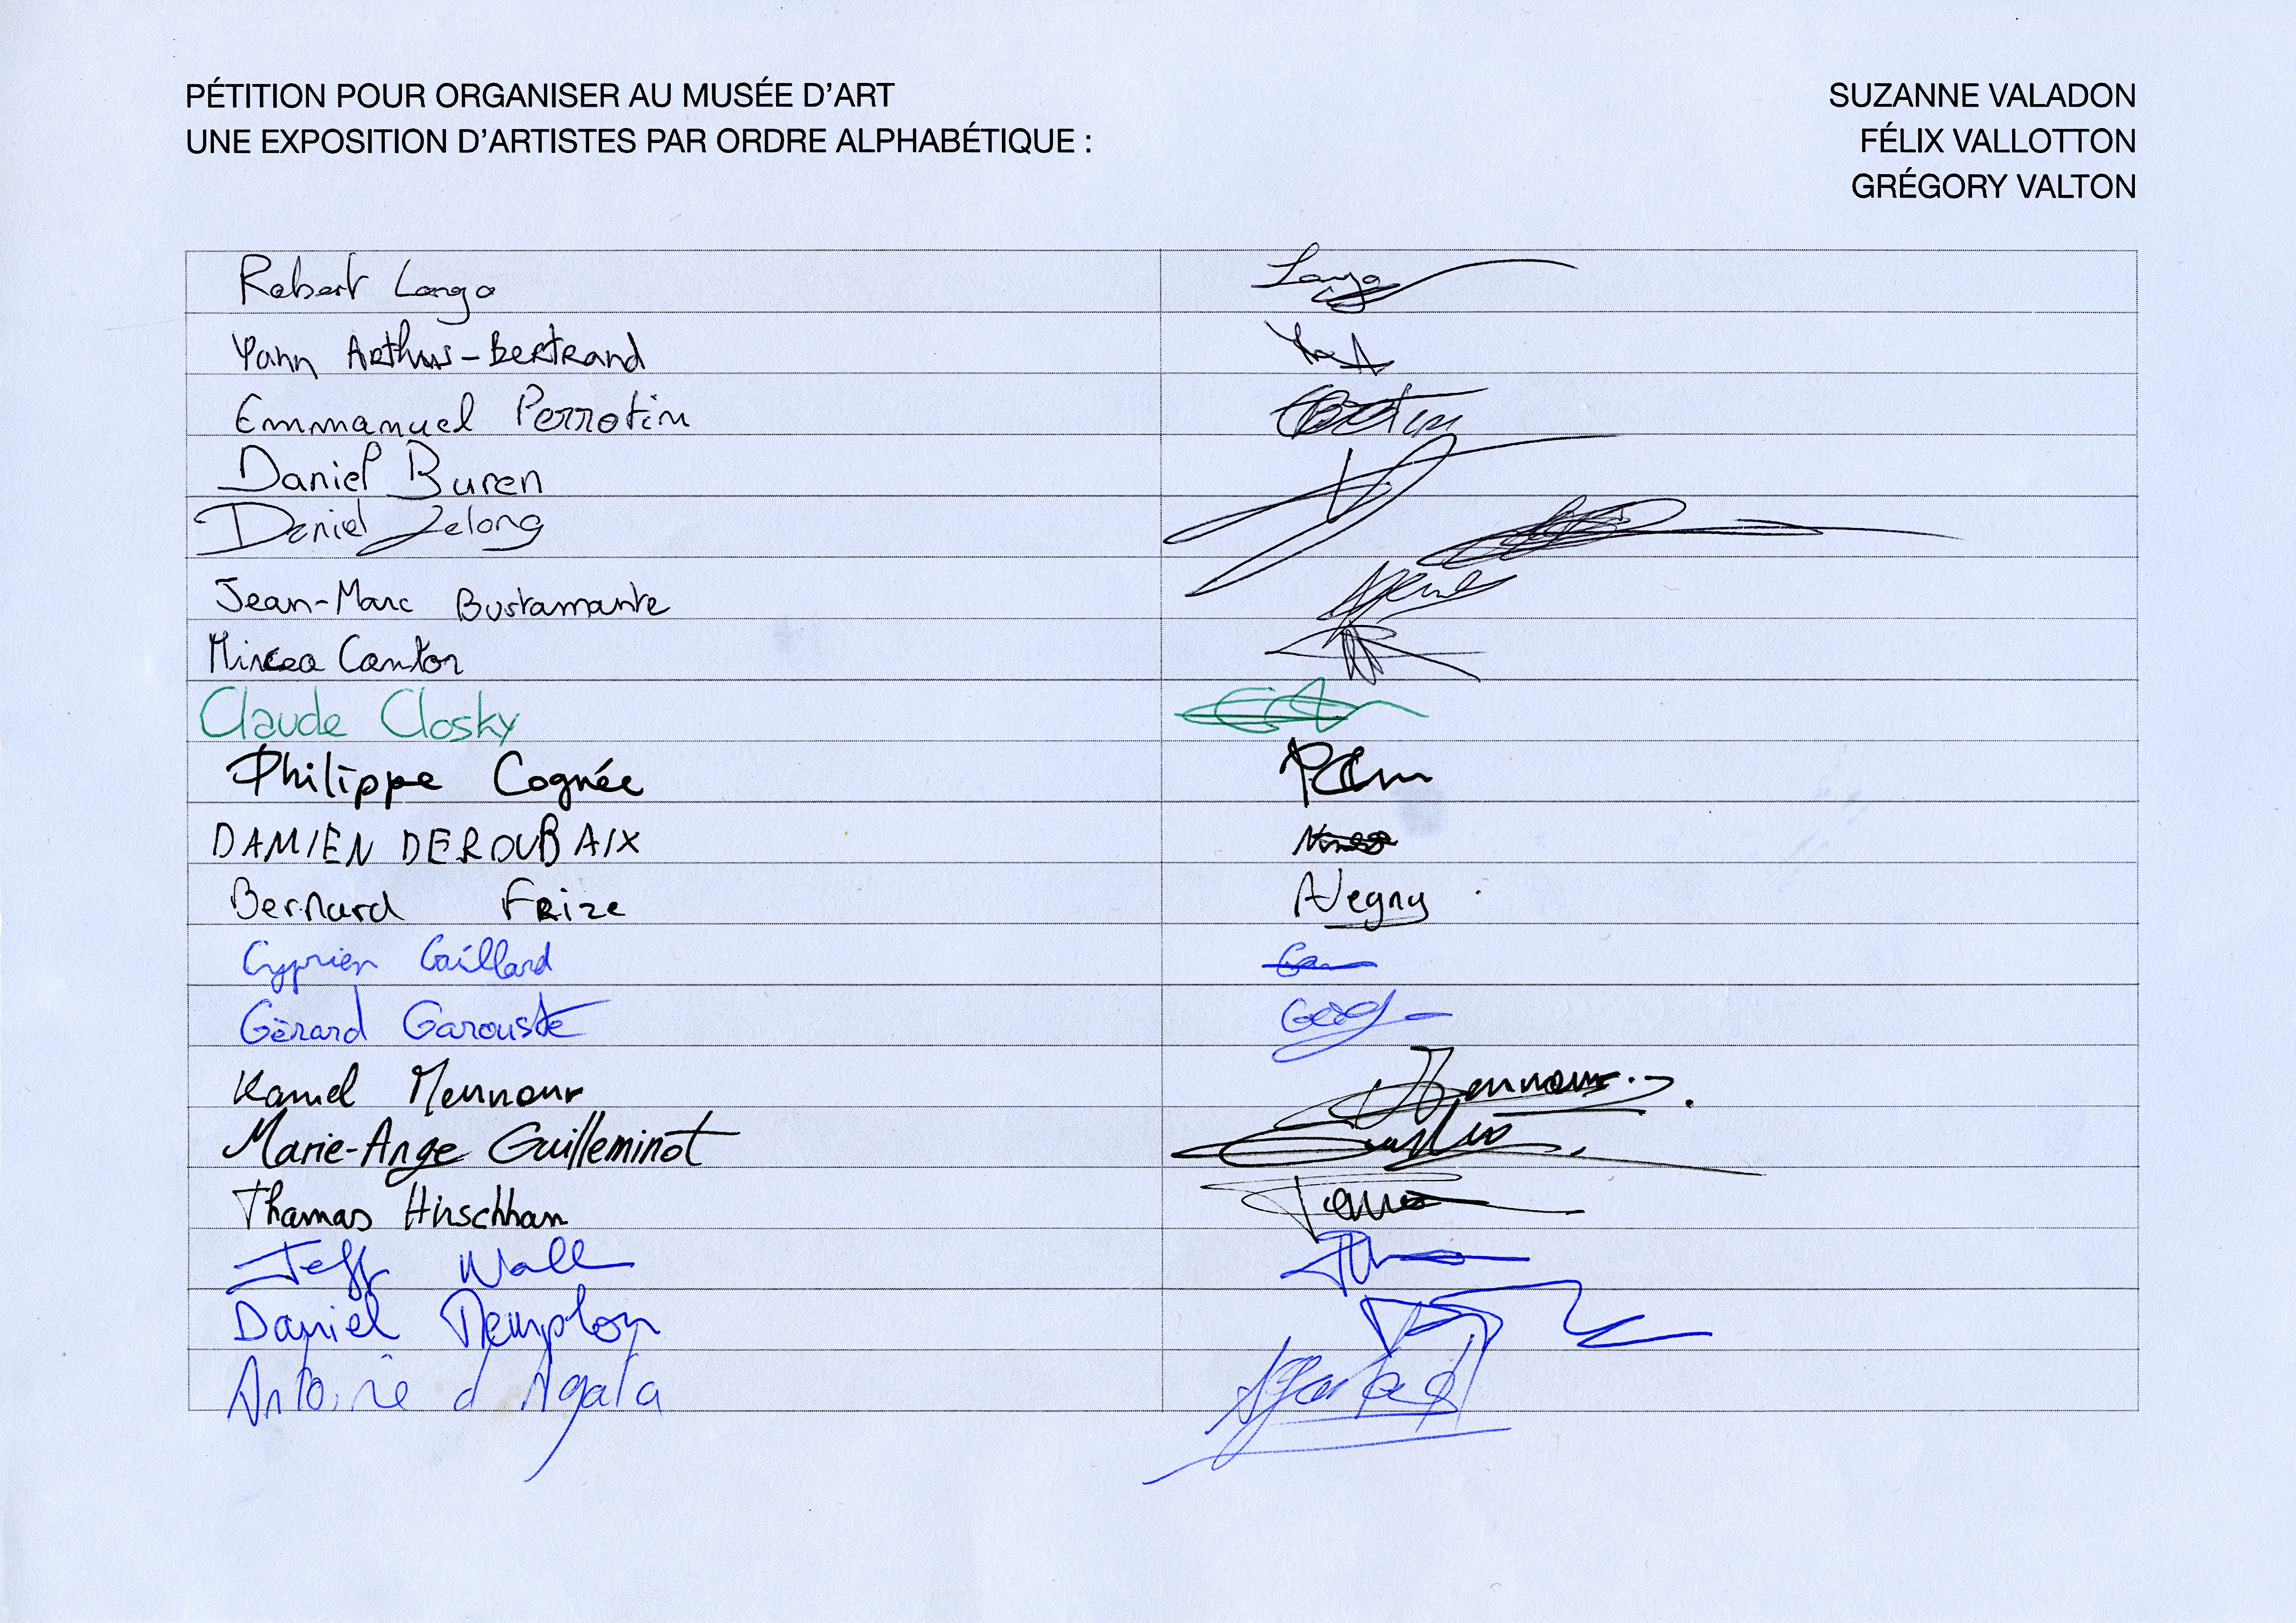 PÉTITION POUR ORGANISER AU MUSÉE D'ART
UNE EXPOSITION D'ARTISTES PAR ORDRE ALPHABÉTIQUE :
SUZANNE VALADON
FÉLIX VALLOTTON
GRÉGORY VALTON
Robert Longo
Yann Arthus-Bertrand
Emmanuel Perrotin
Daniel Buren
Daniel Lelong
Jean-Marc Bustamante
Mircea Cantor
Claude Closky
Philippe Cognée
DAMIEN DEROUBAIX
Bernard Frize
Cyprien Gaillard
Gérard Garouste
Kamel Mennour
Marie-Ange Guilleminot
Thomas Hirschhorn
Jeff Wall
Daniel Templon
Antoine d'Agata